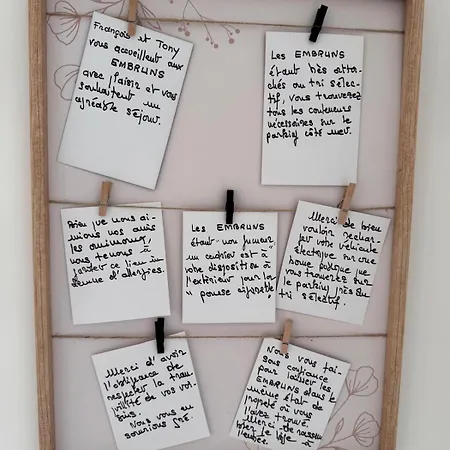 François et Tony
vous accueillent aux
EMBRUNS
avec plaisir et vous
souhaitent un
agréable séjour.
Les EMBRUNS
étant très atta-
chés au tri sélec-
tif, vous trouverez
tous les conteneurs
nécessaires sur le
parking côté mer.
Bien que nous ai-
mions nos amis
les animaux,
nous tenons à
garder ce lieu in-
demne d'allergies.
Les EMBRUNS
étant "non fumeur"
un cendrier est à
votre disposition à
l'extérieur pour la
"pause cigarette"
Merci de bien
vouloir rechar-
ger votre véhicule
électrique sur une
borne publique que
vous trouverez sur
le parking près du
tri sélectif.
Merci d'avoir
l'obligeance de
respecter la tran-
quillité de vos voi-
sins.
Nous vous en
saurions gré.
Nous vous fai-
sons confiance
pour laisser les
EMBRUNS dans le
même état de
propreté où vous
l'avez trouvé.
Merci de
le